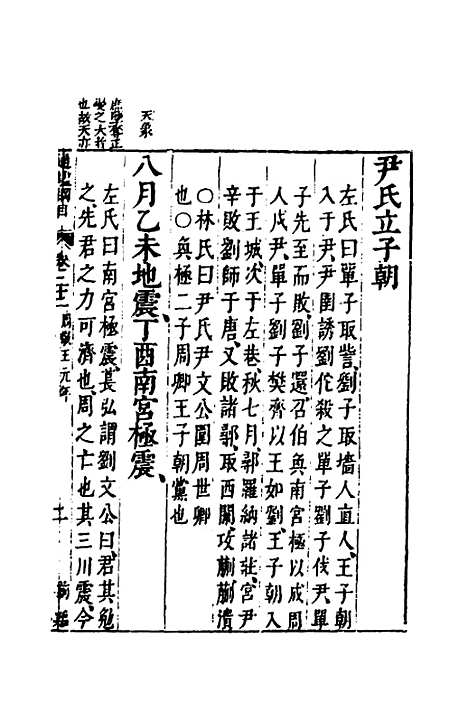 尹氏立子朝
左氏曰單子取訾劉子取墻人直人王子朝
入于尹尹圉誘劉佗殺之單子劉子伐尹單
子先至而敗劉子還召伯奐南宮極以成周
人戍尹單子劉子樊齊以王如劉王子朝入
于王城次于左巷秋七月鄩羅納諸莊宮尹
辛敗劉師于唐又敗諸鄩取西闈攻蒯蒯潰
○林氏曰尹氏尹文公圉周世卿
也○奐極二子周卿王子朝黨也
八月乙未地震丁酉南宮極震
左氏曰南宮極震萇弘謂劉文公曰君其勉
之先君之力可濟也周之亡也其三川震今
天象
庶孽奪正
變之大者
也故天亦
卷二十二周敬王元年